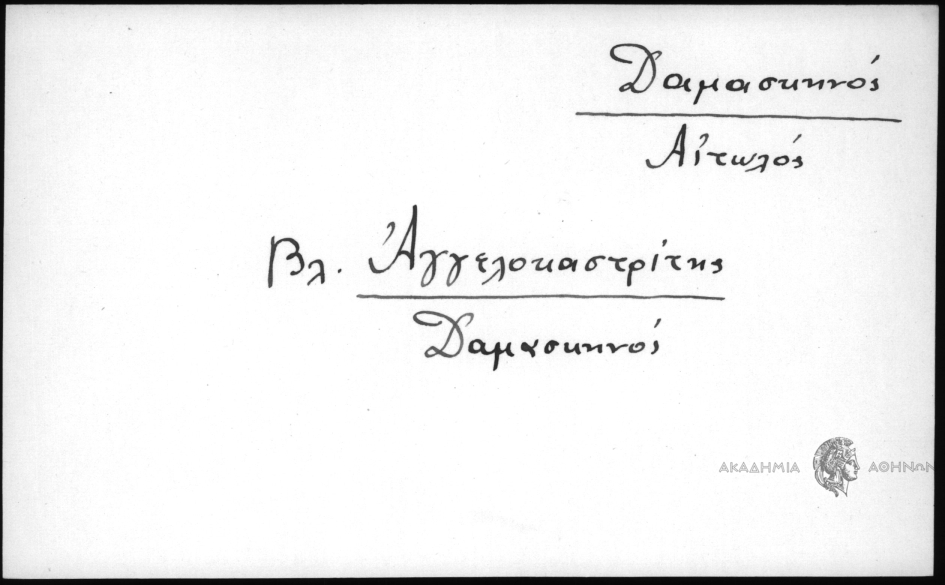 Δαμασκηνός
Αἰτωλός
Βλ. Ἀγγελοκαστρίτης
Δαμασκηνός
ΑΚΑΔΗΜΙΑ ΑΘΗΝΩΝ